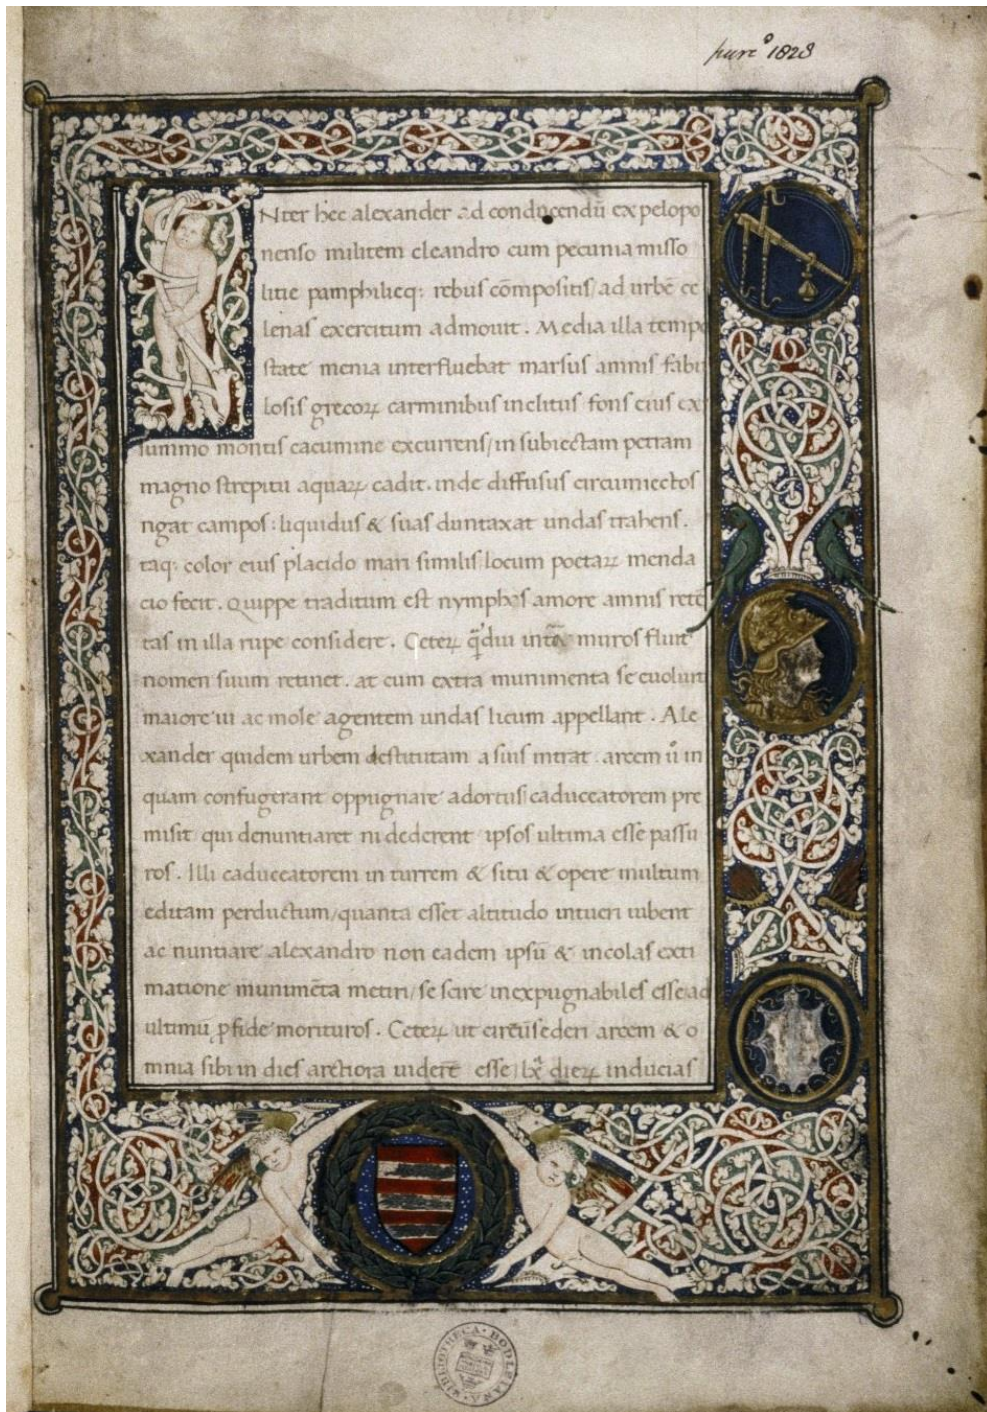 purc⁰ 1828
INter hec alexander ad conducendū ex pelopo
nenso militem cleandro cum pecunia misso
litie pamphilieq; rebus cōmpositis/ad urbē ce
lenas exercitum admouit. Media illa tempo
state menia interfluebat marsus amnis fabu
losis grecoꝝ carminibus inclitus fons eius ex
summo montis cacumine excurrens/in subiectam petram
magno strepitu aquaꝝ cadit. inde diffusus circumiectos
rigat campos: liquidus & suas duntaxat undas trahens.
Itaq; color eius placido mari similis locum poetaꝝ menda
cio fecit. Quippe traditum est nymphas amore amnis retē
tas in illa rupe considere. Ceteꝝ q̄diu intra muros fluit
nomen suum retinet. at cum extra munimenta se euoluit
maiore ui ac mole agentem undas licum appellant. Ale
xander quidem urbem destitutam a suis intrat. arcem ů in
quam confugerant oppugnare adortus caduceatorem pre
misit qui denuntiaret ni dederent ipsos ultima esse passu
ros. Illi caduceatorem in turrem & situ & opere multum
editam perductum/quanta esset altitudo intueri iubent
ac nuntiare alexandro non eadem ipsū & incolas exti
matione munimēta metiri/se scire inexpugnabiles esse ad
ultimū ꝓ fide morituros. Ceteꝝ ut circūsederi arcem & o
mnia sibi in dies arctiora uiderē esse lx dieꝝ inducias
BIBLIOTHECA BODLEIANA